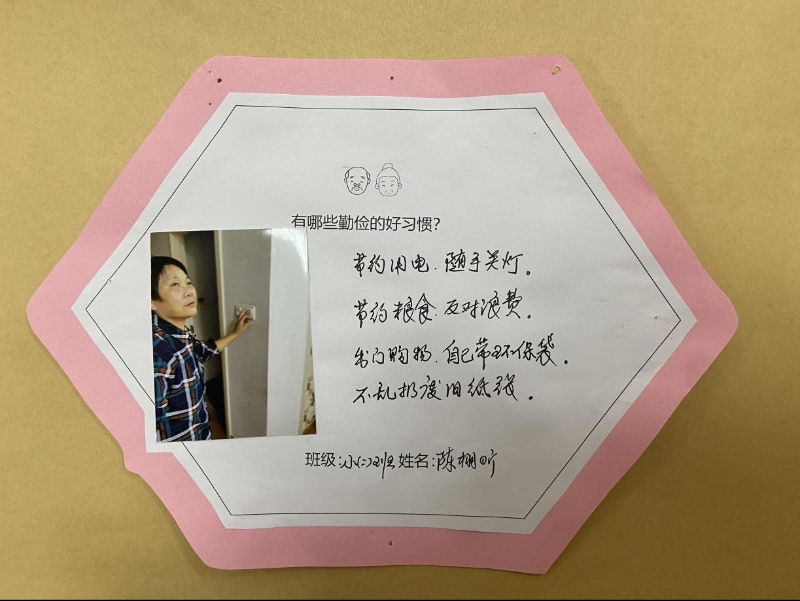 有哪些勤俭的好习惯?
节约用电.随手关灯。
节约粮食.反对浪费。
出门购物.自己带环保袋。
不乱扔废旧纸张。
班级:小(二)班 姓名:陈栩昕